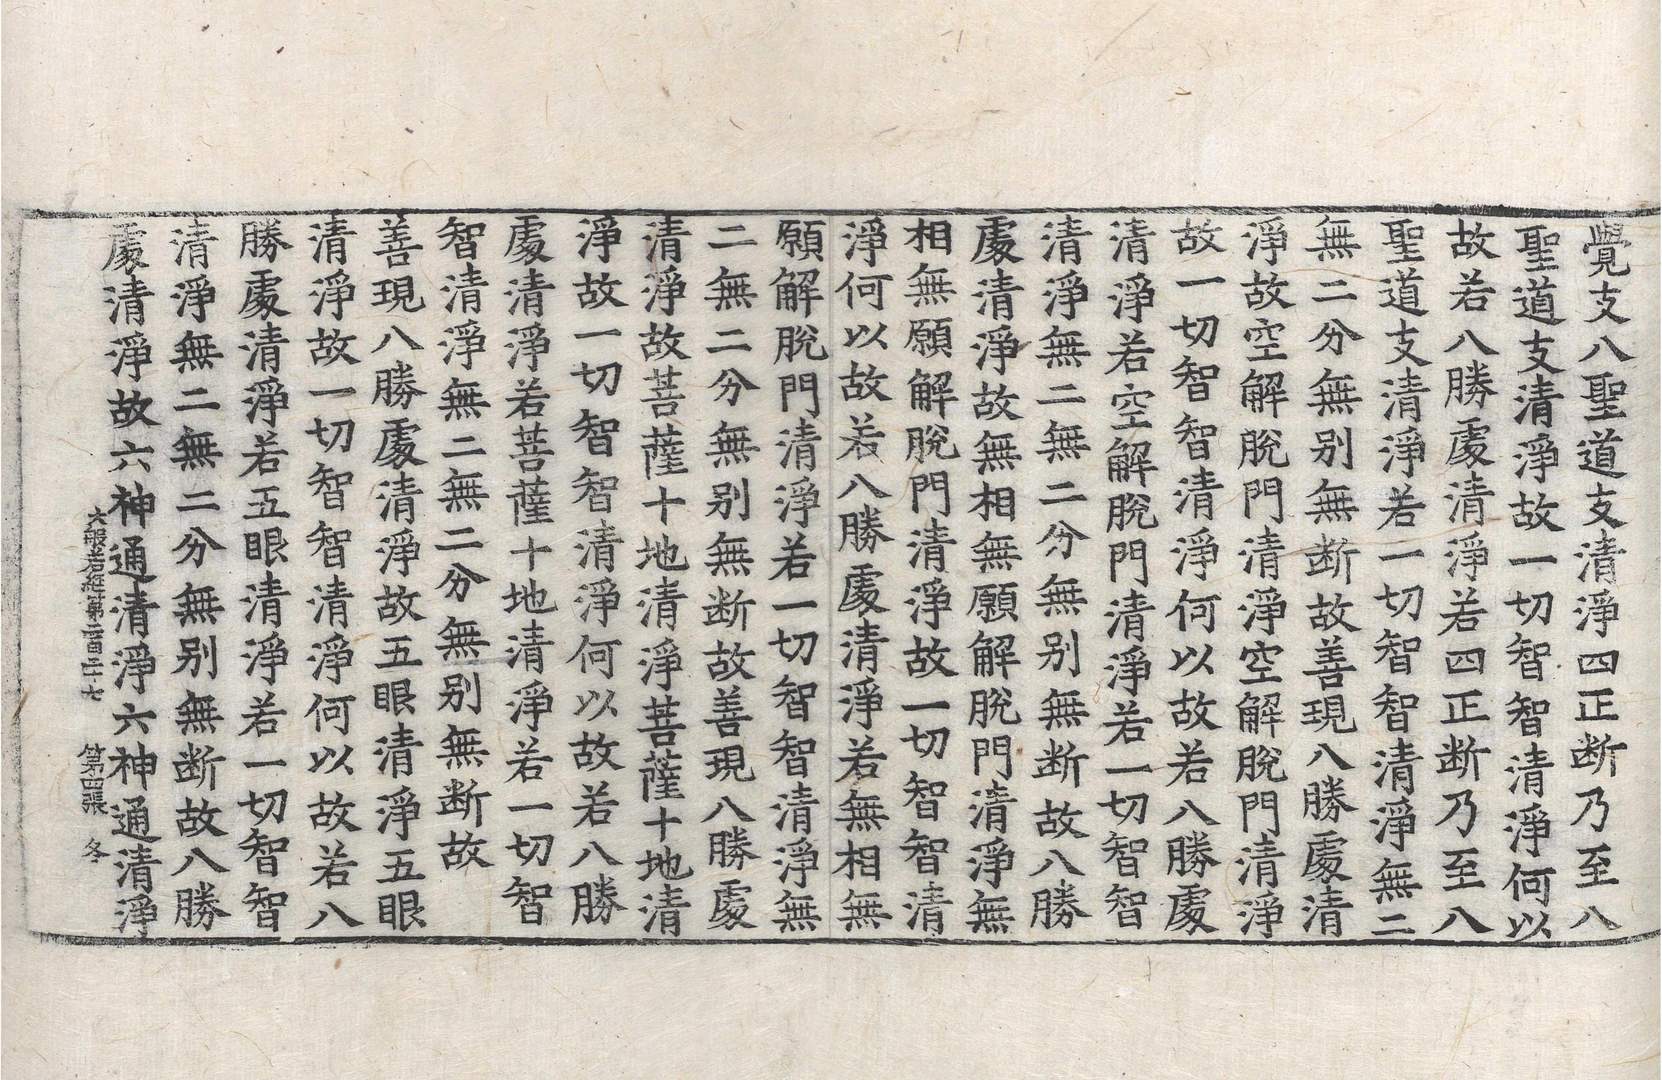 覺支八聖道支清淨四正断乃至八
聖道支清淨故一切智智清淨何以
故若八勝處清淨若四正断乃至八
聖道支清淨若一切智智清淨無二
無二分無别無断故善現八勝處清
淨故空解脫門清淨空解脫門清淨
故一切智智清淨何以故若八勝處
清淨若空解脫門清淨若一切智智
清淨無二無二分無别無断故八勝
處清淨故無相無願解脫門清淨無
相無願解脫門清淨故一切智智清
淨何以故若八勝處清淨若無相無
願解脫門清淨若一切智智清淨無
二無二分無别無断故善現八勝處
清淨故菩薩十地清淨菩薩十地清
淨故一切智智清淨何以故若八勝
處清淨若菩薩十地清淨若一切智
智清淨無二無二分無别無断故
善現八勝處清淨故五眼清淨五眼
清淨故一切智智清淨何以故若八
勝處清淨若五眼清淨若一切智智
清淨無二無二分無别無断故八勝
處清淨故六神通清淨六神通清淨
大般若經第二百二十七 第四張 冬